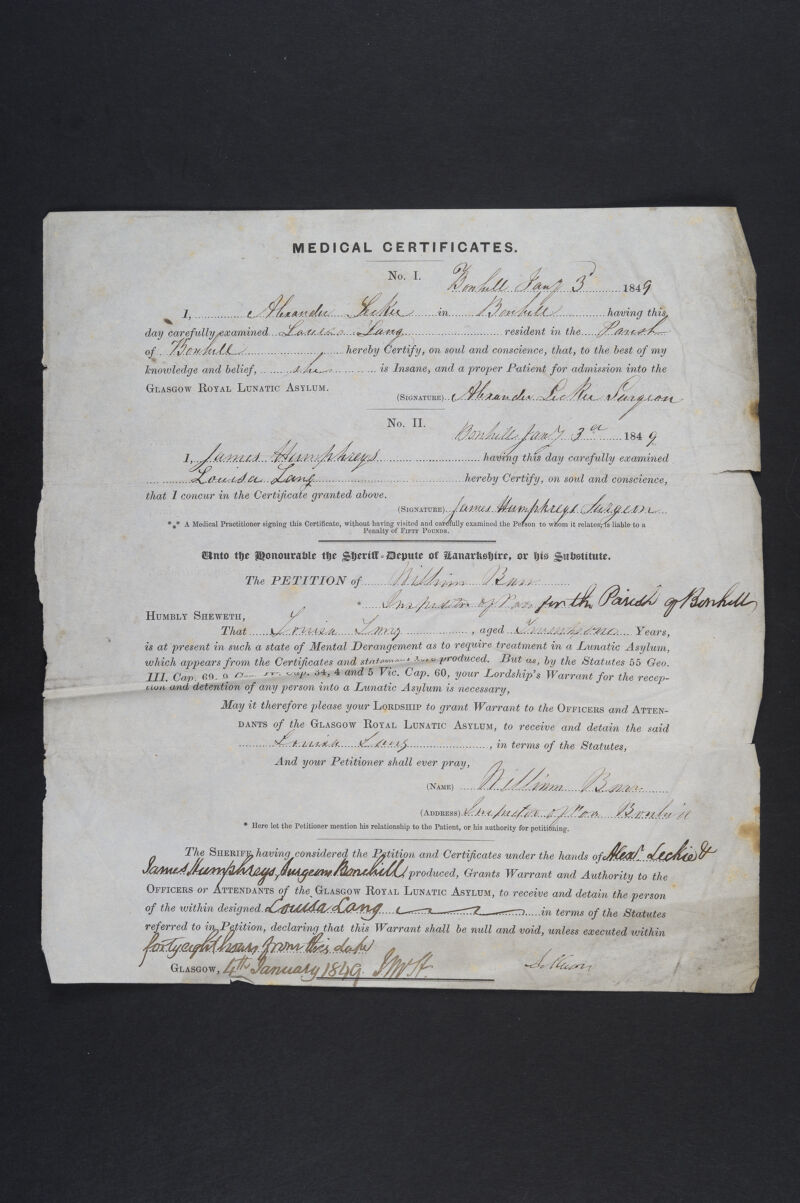 MEDICAL CERTIFICATES.
No. I.
Bonhill Jany 3d 1849
I, Alexander Leckie in Bonhill having this
day carefully examined Louisa Lang resident in the Parish
of Bonhill hereby Certify, on soul and conscience, that, to the best of my
knowledge and belief, she is Insane, and a proper Patient for admission into the
GLASGOW ROYAL LUNATIC ASYLUM.
(SIGNATURE). Alexander Leckie Surgeon
No. II.
Bonhill Jany 3d 1849
I, James Humphreys having this day carefully examined
Louisa Lang hereby Certify, on soul and conscience,
that I concur in the Certificate granted above.
(SIGNATURE). James Humphreys Surgeon
*** A Medical Practitioner signing this Certificate, without having visited and carefully examined the Person to whom it relates, is liable to a
Penalty of FIFTY POUNDS.
Unto the Honourable the Sheriff-Depute of Lanarkshire, or his Substitute.
The PETITION of William Barr
* Inspector of Poor for the Parish of Bonhill
HUMBLY SHEWETH,
That Louisa Lang, aged Twenty one Years,
is at present in such a state of Mental Derangement as to require treatment in a Lunatic Asylum,
which appears from the Certificates and produced. But as, by the Statutes 55 Geo.
III. Cap. 69, 9 Cap. 34, 4 and 5 Vic. Cap. 60, your Lordship's Warrant for the recep-
tion and detention of any person into a Lunatic Asylum is necessary,
May it therefore please your LORDSHIP to grant Warrant to the OFFICERS and ATTEN-
DANTS of the GLASGOW ROYAL LUNATIC ASYLUM, to receive and detain the said
Louisa Lang, in terms of the Statutes,
And your Petitioner shall ever pray,
(NAME) William Barr
(ADDRESS) Inspector of Poor Bonhill
* Here let the Petitioner mention his relationship to the Patient, or his authority for petitioning.
The SHERIFF, having considered the Petition and Certificates under the hands of Alexr. Leckie &
James Humphreys, Surgeons Bonehill, produced, Grants Warrant and Authority to the
OFFICERS or ATTENDANTS of the GLASGOW ROYAL LUNATIC ASYLUM, to receive and detain the person
of the within designed Louisa Lang in terms of the Statutes
referred to in Petition, declaring that this Warrant shall be null and void, unless executed within
forty eight hours from this date
GLASGOW, 4th January 1849.